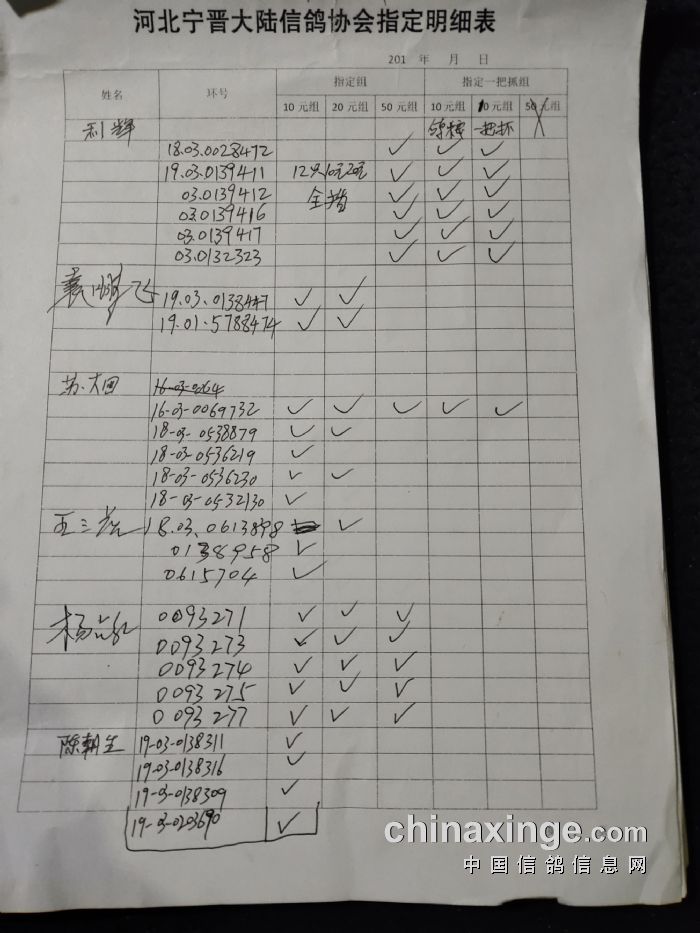 河北宁晋大陆信鸽协会指定明细表
201 年 月 日
姓名 环号 指定组 指定一把抓组
10元组 20元组 50元组 10元组 10元组 50元组
利辉 一把抓
18.03.0028472 ✓ ✓ ✓
19.03.0139411 12只10元20元 ✓ ✓ ✓
03.0139412 全指 ✓ ✓ ✓
03.0139416 ✓ ✓ ✓
03.0139417 ✓ ✓ ✓
03.0132323 ✓ ✓ ✓
袁鹏飞
19.03.0138447 ✓ ✓
19.01.5788474 ✓ ✓
苏大田 16-03-0064
16-03-0069732 ✓ ✓ ✓ ✓ ✓
18-03-0538879 ✓ ✓
18-03-0536219 ✓
18-03-0536230 ✓ ✓
18-03-0532130 ✓
王三 18.03.0613898 ✓
0138958 ✓
0615704 ✓
杨 0093271 ✓ ✓ ✓
0093273 ✓ ✓ ✓
0093274 ✓ ✓ ✓
0093275 ✓ ✓ ✓
0093277 ✓ ✓ ✓
陈朝生 19-03-0138311 ✓
19-03-0138316 ✓
19-03-0138309 ✓
19-03-0203690 ✓
chinaxinge.com
中国信鸽信息网